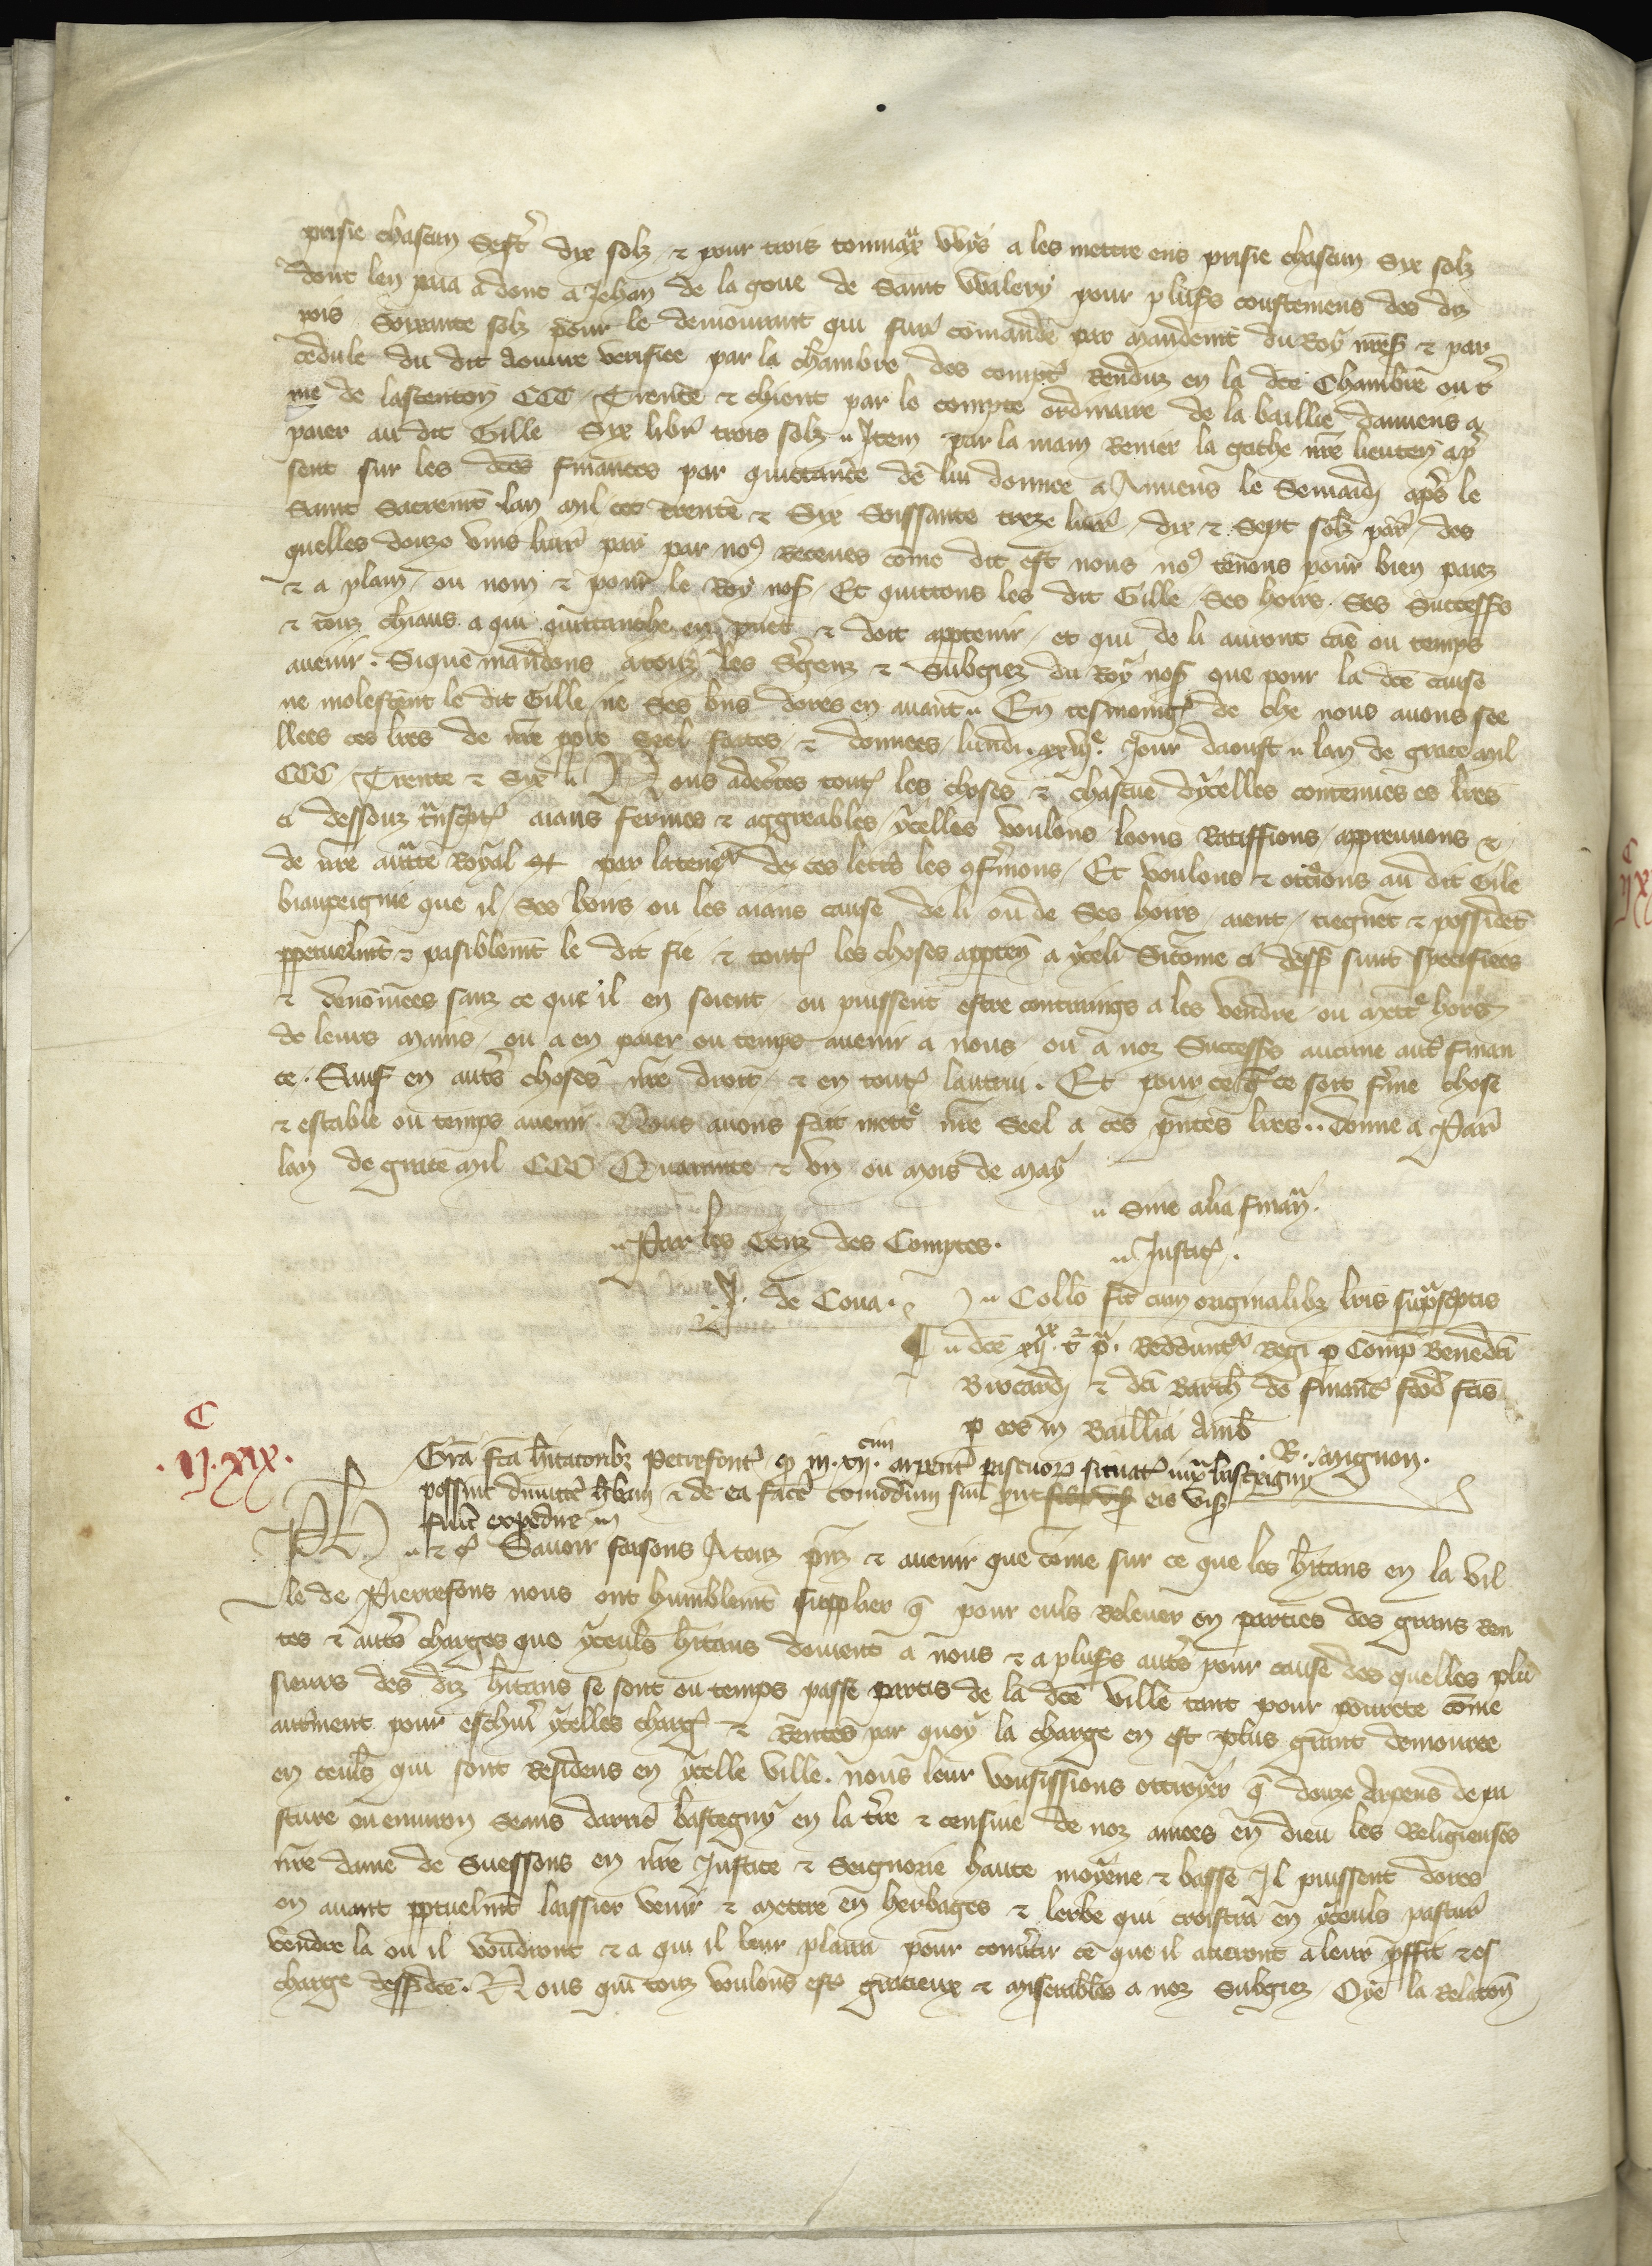 prisie chascun Sestˀ dix solz ⁊ pour trois tonniax vvys a les mettre ens prisie chascun Six solz
dont len paia adont a Jehan de la goue de Saint Walery pour plusˀs coustemens des diz
pois Soixante solz pour le demourant qui fuˀ comande par mandemt du Roy nreS ⁊ par
cedule du dit verifiee par la chambre des comptˀ Renduz en la dce Chambre ou tˀ
me de lascencion CCC Trente ⁊ chienc par le compte ordinaire de la baillie damiens a
paier au dit Gille Six librˀ trois solz Item par la main Renier la gache nre lieuten apˀ
sent sur les dces finances par quittance de lui donnee a Amiens le Semadi apˀs le
Saint Sacremt lan mil ccc trente ⁊ Six Soissante treze livrˀ dix ⁊ Sept solz parˀ des
quelles douze vins livrˀ par par noˀ Receues come dit est nous noˀ tenons pour bien paiez
⁊ a plain ou nom ⁊ pour le Roy noS Et quittons les dit Gille Ses hoirs Ses Successˀs
⁊ touz chiaus a qui quittanche en puet ⁊ doit apptenir et qui de li auront cae ou temps
auenir. Sique mandons atouz les Sˀgenz ⁊ Subgiez du Roy noS que pour la dce cause
ne molestent le dit Gille ne Ses bns dores en auant En tesmoingˀ de che nous auons see
llees ces lres de nre ppre Seel faites ⁊ donnees lundi xxvijᵉ Jour daoust lan de grace mil
CCC Trente ⁊ Six Nous adecˀtes toutˀ les choses ⁊ chascune dycelles contenues es lres
ci dessouz tnscptˀ aians fermes ⁊ aggreables ycelles voulons loons Ratiffions appreuuons ⁊
de nre auctte Royal par la tenˀ de ces lettˀs les 9fˀmons Et voulons ⁊ ottˀions au dit Gile
biaupeignie que il Ses hoirs ou les aians cause de li ou de Ses hoirs aient tiegnet ⁊ possidet
ppetuelmt ⁊ paisiblemt le dit fie ⁊ toutˀ les choses appten a yceli Sicome ci dessˀ sunt specifiees
⁊ denomees sanz ce que il en soient ou puissent estre contrains a les vendre ou mettˀ hors
de leurs mains ou a en paier ou temps auenir a nous ou a noz Successˀs aucune autˀ finan
ce. Sauf en autˀs choses nre droit ⁊ en toutˀ lautrui. Et pour ce q̃ ce soit fˀme chose
⁊ estable ou temps auenir Nous auons fait mettˀ nre Seel a ces pntes lres Donne a Parˀ
lan de grace mil CCC Quarante ⁊ vn ou mois de may
Sine alia finanˀ.
Par les Genz des Comptes.
Justicˀ.
de Coua.
Collˀo fˀit cum originalibz lris supˀscptis
dce xijˣˣ tˀ pˀ. Reddunˀt Regi p Comp Benedci
Brocardi ⁊ dci Barthˀ de financˀ feod fcis
p eos in Baillia Ambˀ
. R. mignon.
C
.ij.xix.
Gra fca hˀitatoribz Petrefontˀ q̃ in .xij. cum arpentˀ pascuoR situatˀ iuxˀ bastegny
possint dimittˀe hˀbam ⁊ de ea facˀe comodum suu prout eis visˀ
fuˀit expedire
Ph ⁊ cˀ Sauoir faisons Atouz pnz ⁊ auenir que come sur ce que les hˀitans en la vil
le de Pierrefons nous ont humblemt supplier q̃ pour euls Releuer en parties des grans Ren
tes ⁊ autˀs charges que yceuls hˀitans doiuent a nous ⁊ a plusˀs autˀs pour cause des quelles plu
sieurs des diz hˀitans se sont ou temps passe partis de la dce ville tant pour pourete come
autˀment pour eschiuˀ ycelles chargˀ ⁊ Rentes par quoy la charge en est plus grant demouree
en ceuls qui sont Residens en ycelle ville. nous leur vousissions ottroyer q̃ douze Arpens de pa
sture ou enuiron Seans darrˀe bastegny en la tˀre ⁊ censiue de noz amees en dieu les Religieuses
nre dame de Suessons en nre Justice ⁊ Seignorie haute moyene ⁊ basse Il puissent dores
en auant pptuelmt laissier venir ⁊ mettre en herbages ⁊ lerbe qui croistra en yceuls pasturˀ
vendre la ou il voudront ⁊ a qui il leur plaira pour conuˀtir ce que il aueront a leur pˀffit ⁊ es
charge dessˀdce. Nous qui touz voulons estˀ gracieux ⁊ a noz Subgiez Oye la Relacon